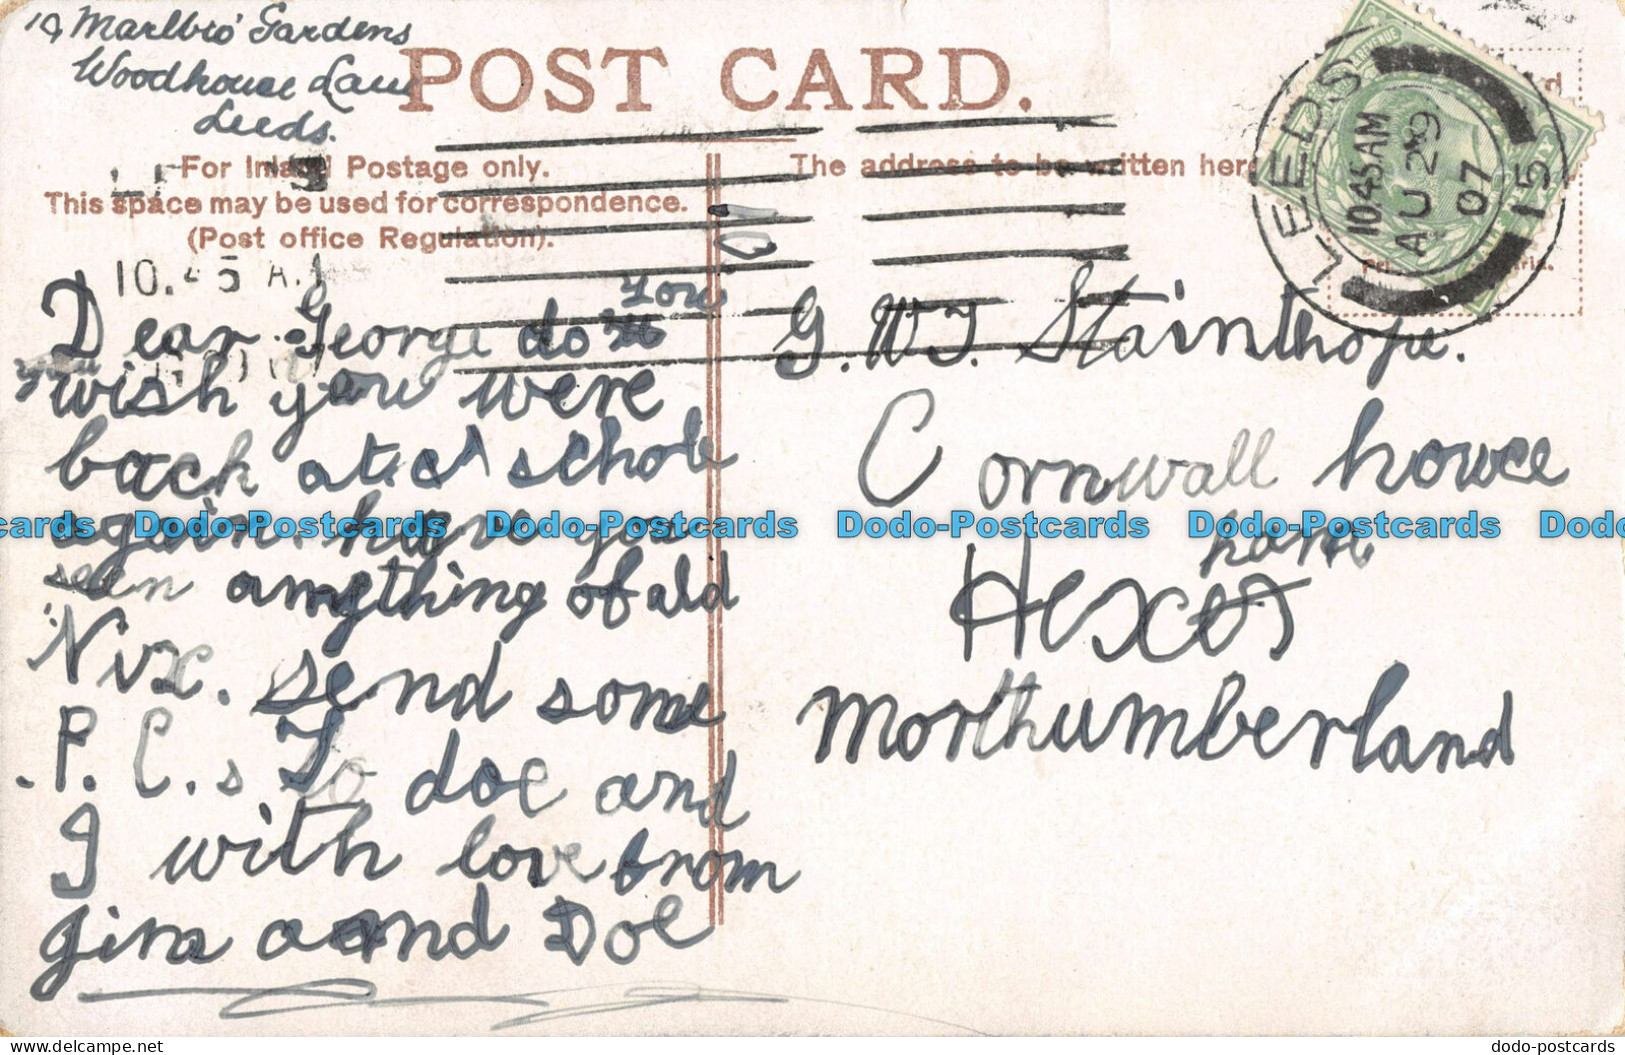 19 Marlbro' Gardens
Woodhouse Lane
Leeds.
POST CARD.
For Inland Postage only.
This space may be used for correspondence.
(Post office Regulation).
The address to be written here
LEEDS
10 45 AM
AU 29
07
15
REVENUE
10.45 A.
Dear George do you
you wish you were
back at schole
again. have you
seen anything of ald
Nix. send some
P.C.s To doe and
I with love from
Jim aand Doe
G.W.J. Stainthope.
Cornwall howce
ham
Hexes
Northumberland
Dodo-Postcards Dodo-Postcards Dodo-Postcards Dodo-Postcards
dodo-postcards.com
dodo-postcards